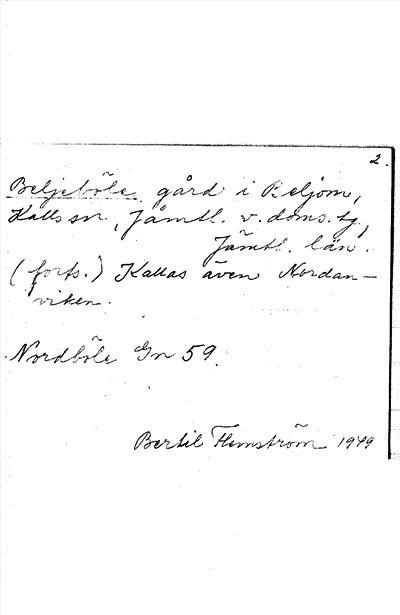 2.
Beljeböle, gård i Reljom,
Kalls sn., Jämtl. v. doms. tg,
Jämtl. län.
(forts.) Kallas även Nordan-
viken.
Nordböle Gn 59.
Bertil Flemström 1949